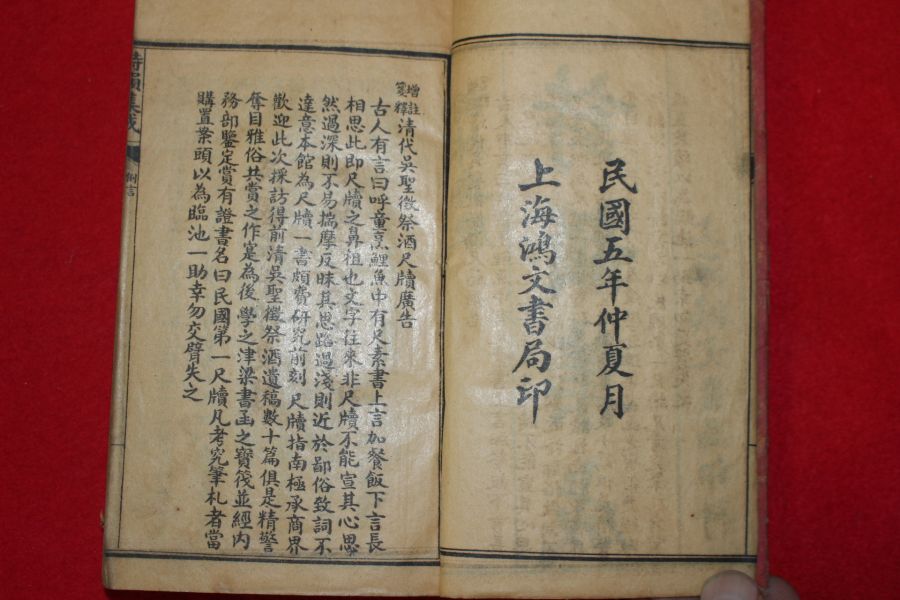 民國五年仲夏月
上海鴻文書局印
增註箋釋清代吳聖徵祭酒尺牘廣告
古人有言曰呼童烹鯉魚中有尺素書上言加餐飯下言長
相思此即尺牘之鼻祖也文字往來非尺牘不能宣其心思
然過深則不易揣摩反昧其思路過淺則近於鄙俗致詞不
達意本館為尺牘一書頗費研究前刻尺牘指南極承商界
歡迎此次採訪得前清吳聖徵祭酒遺稿數十篇俱是精警
奪目雅俗共賞之作寔為後學之津梁書函之寶筏並經內
務部鑒定賞有證書名曰民國第一尺牘凡考究筆札者當
購置案頭以為臨池一助幸勿交臂失之
詩韻集成